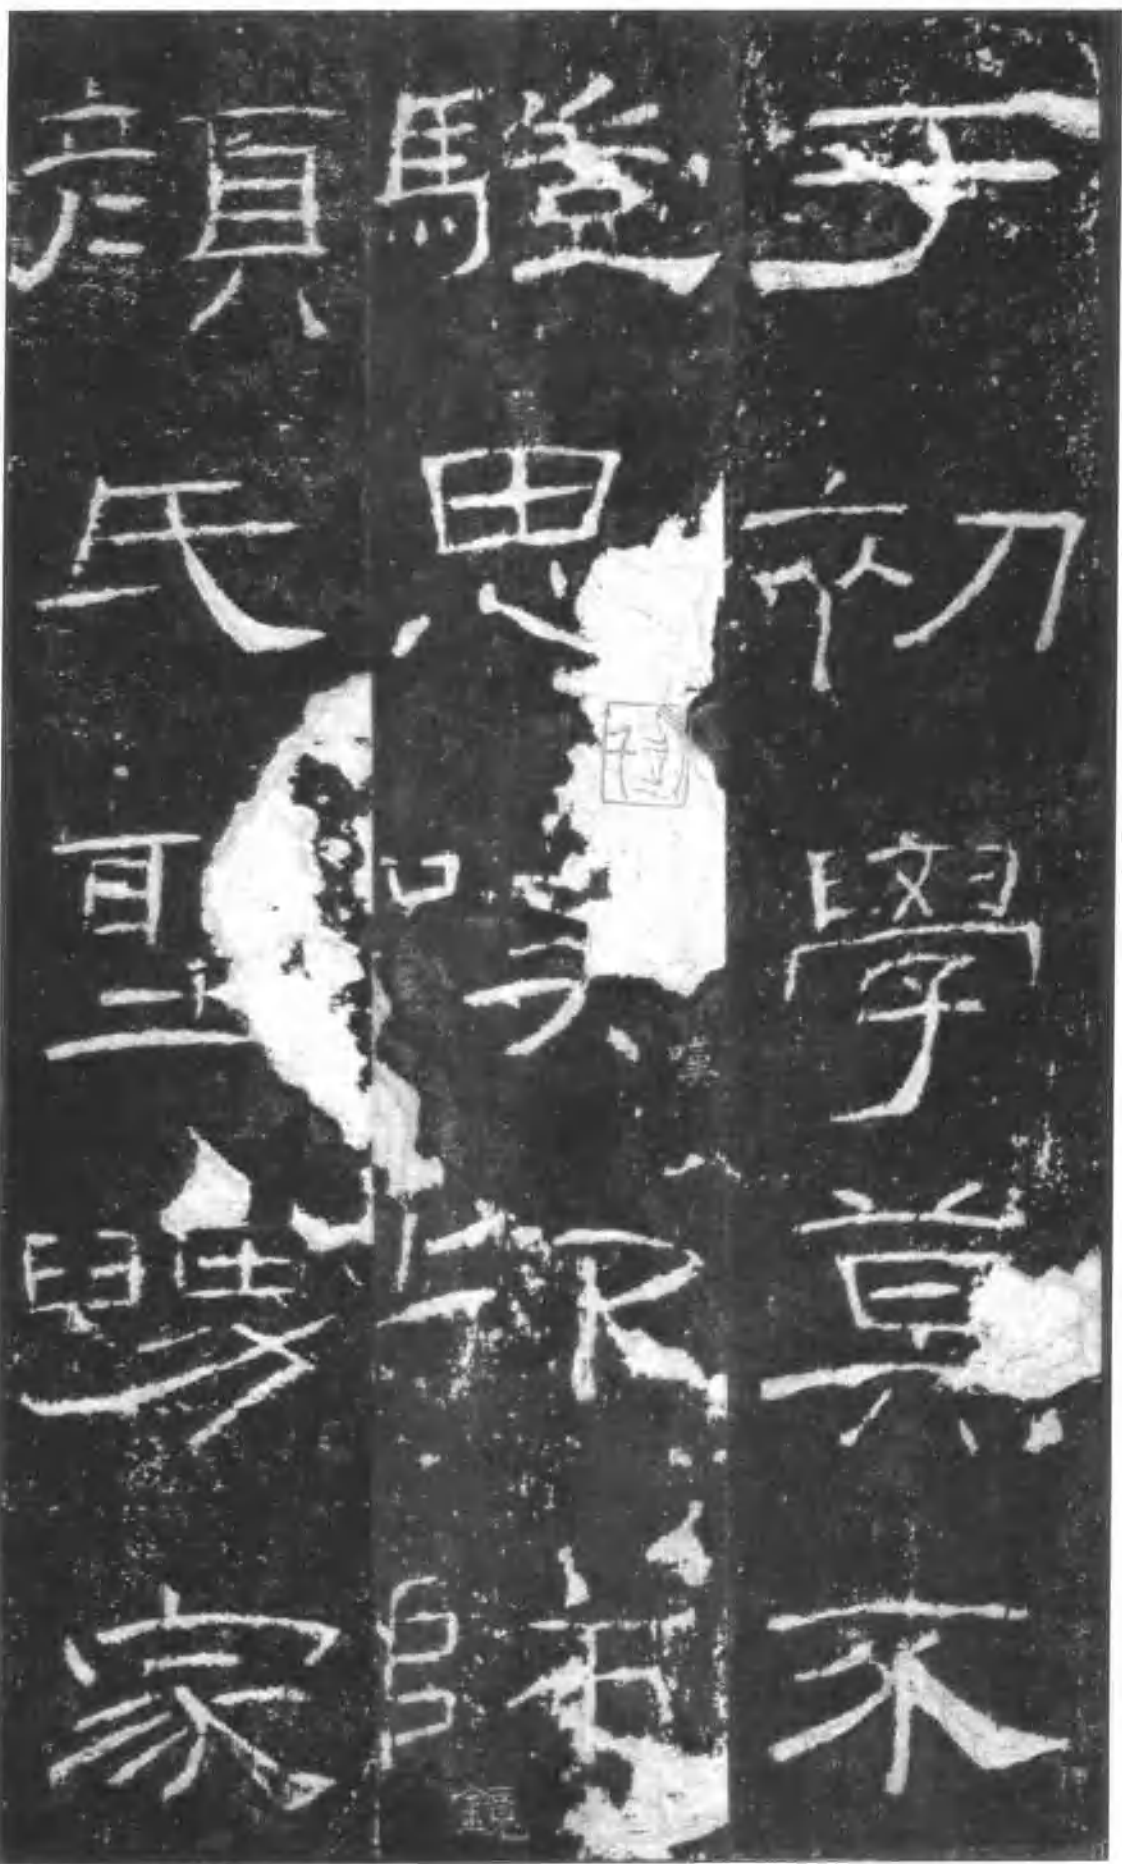 于初學莫不
驥思嘆卬師
顏氏聖舅家